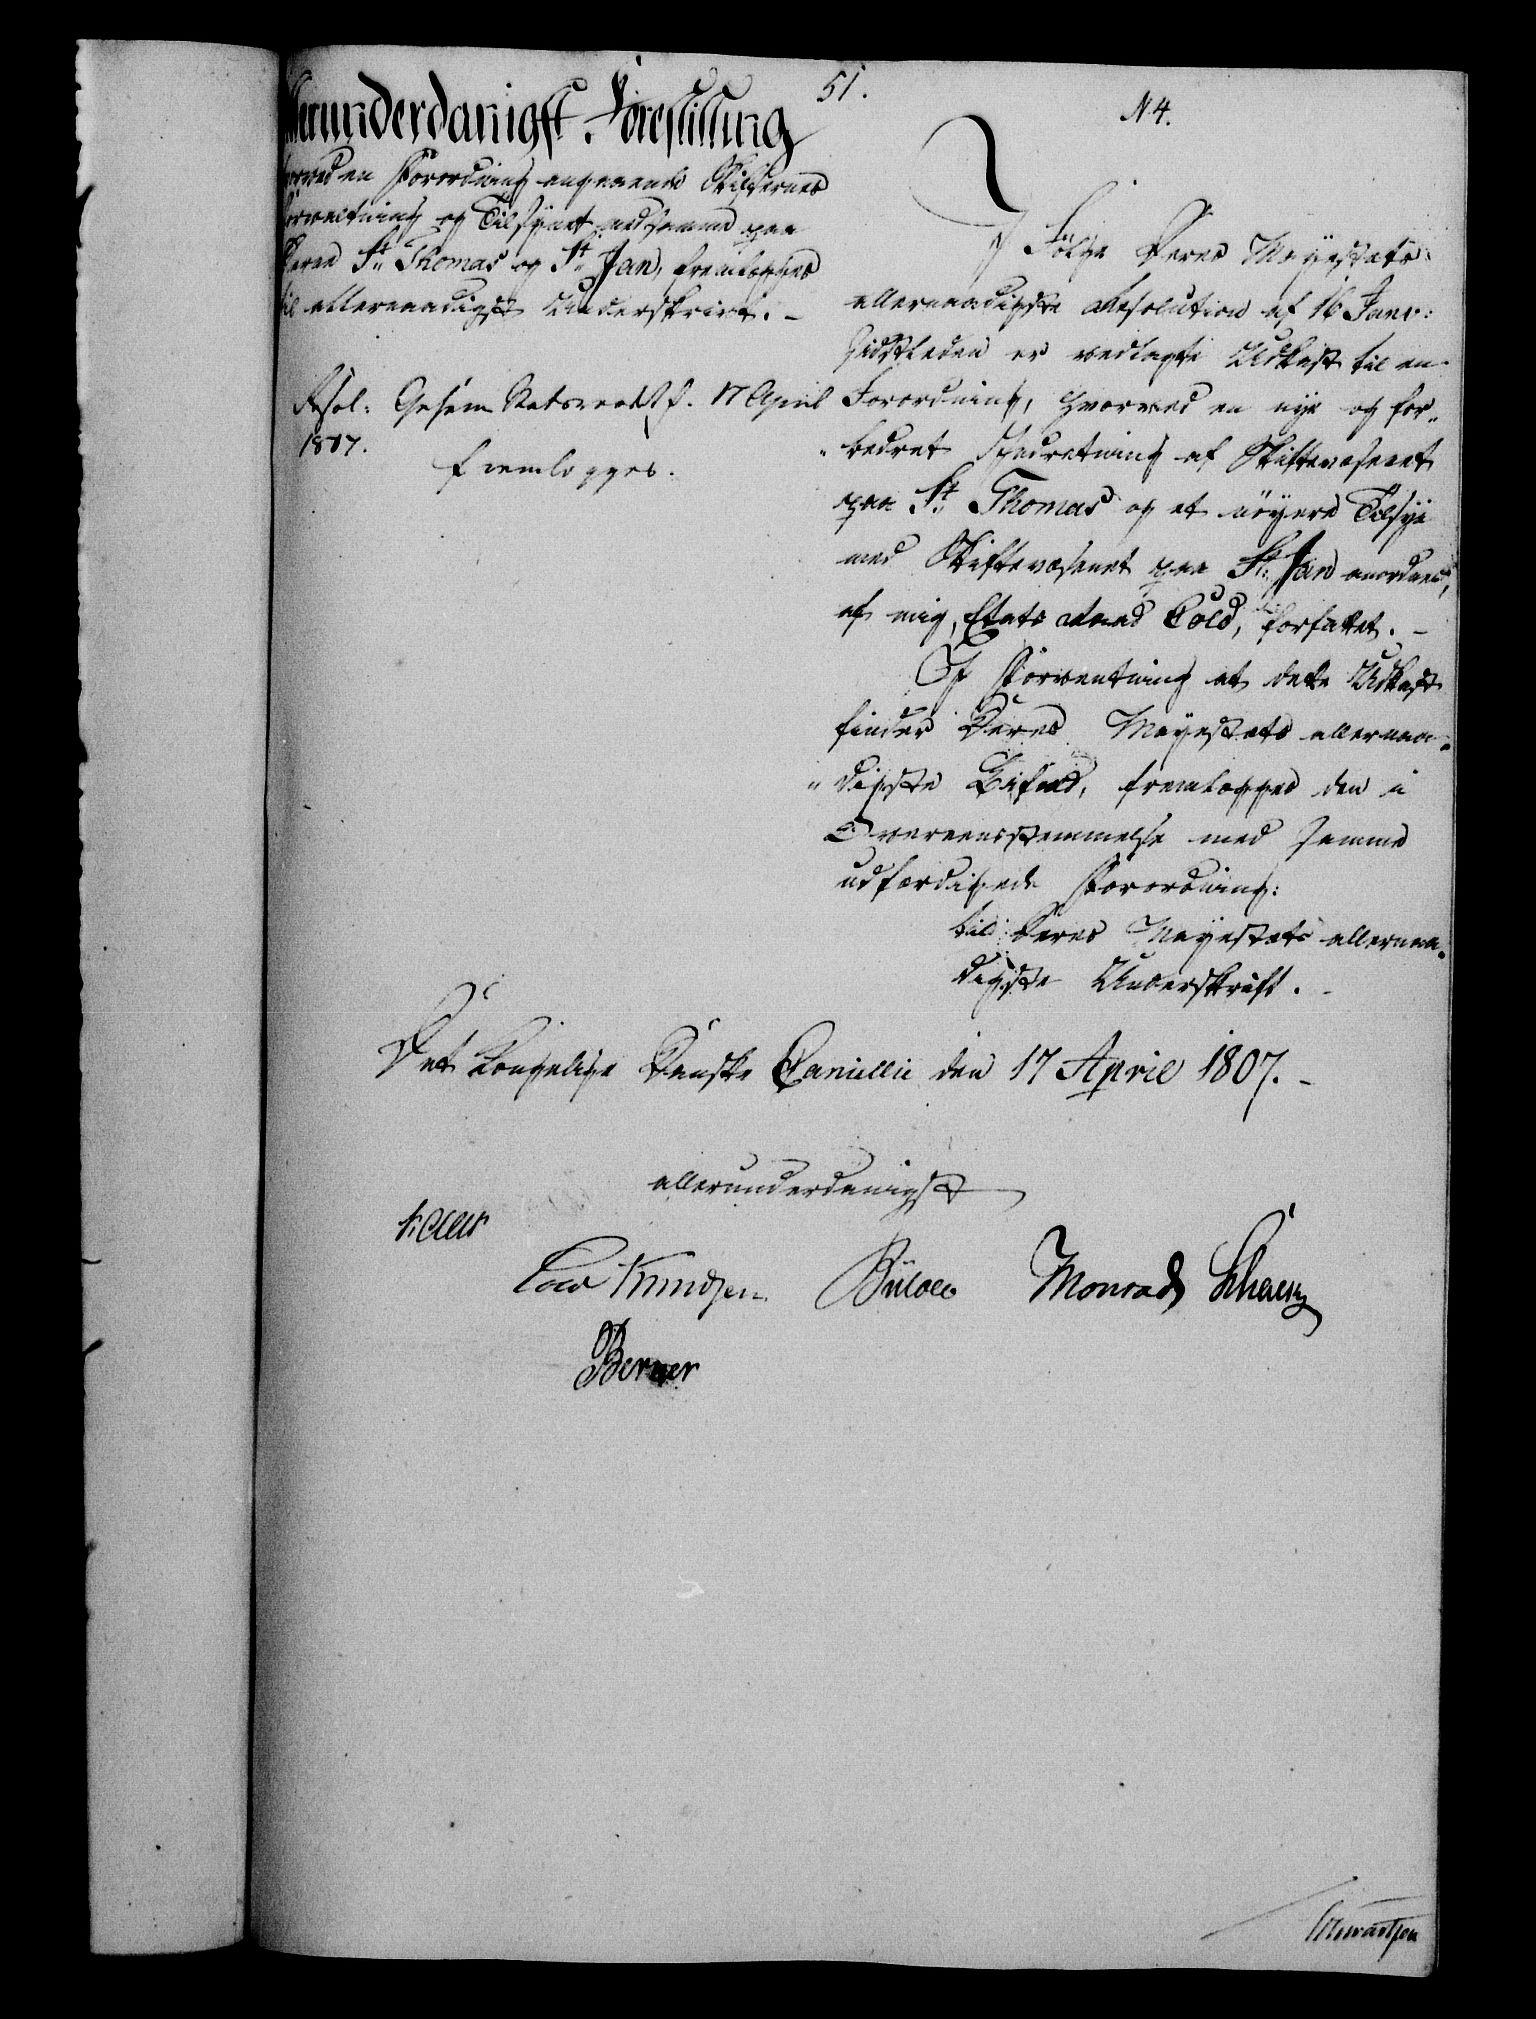 51.
N 4.
Allerunderdanigst Forestilling
hvorved en Forordning angaaende Skifternes
Forvaltning og Tilsynet med samme paa
Øerne St Thomas og St Jan, fremlægges
til allernaadigst Underskrivt. -
Resol: Gehejm Statsraadet d. 17 April
1807.
fremlægges.
I Følge Deres Mayestæts
allernaadigste Resolution af 16 Janv:
sidstleden er vedlagte Udkast til en
Forordning, hvorved en nye og for-
bedret Indretning af Skiftevæsenet
paa St Thomas og et nöyere Tilsyn
med Skiftevæsenet paa St: Jan anordnes,
af mig, Etats Raad Cold, forfattet. -
I Forventning at dette Udkast
finder Deres Mayestæts allernaa-
digste Bifald, fremlægges den i
Overeensstemmelse med samme
udfærdigede Forordning:
til Deres Mayestæts allernaa-
digste Underskrift. -
Det Kongelige Danske Cancellie den 17 April 1807. -
allerunderdanigst
Kaas
Cold Knudsen Bülow Monrad Schou
Berner